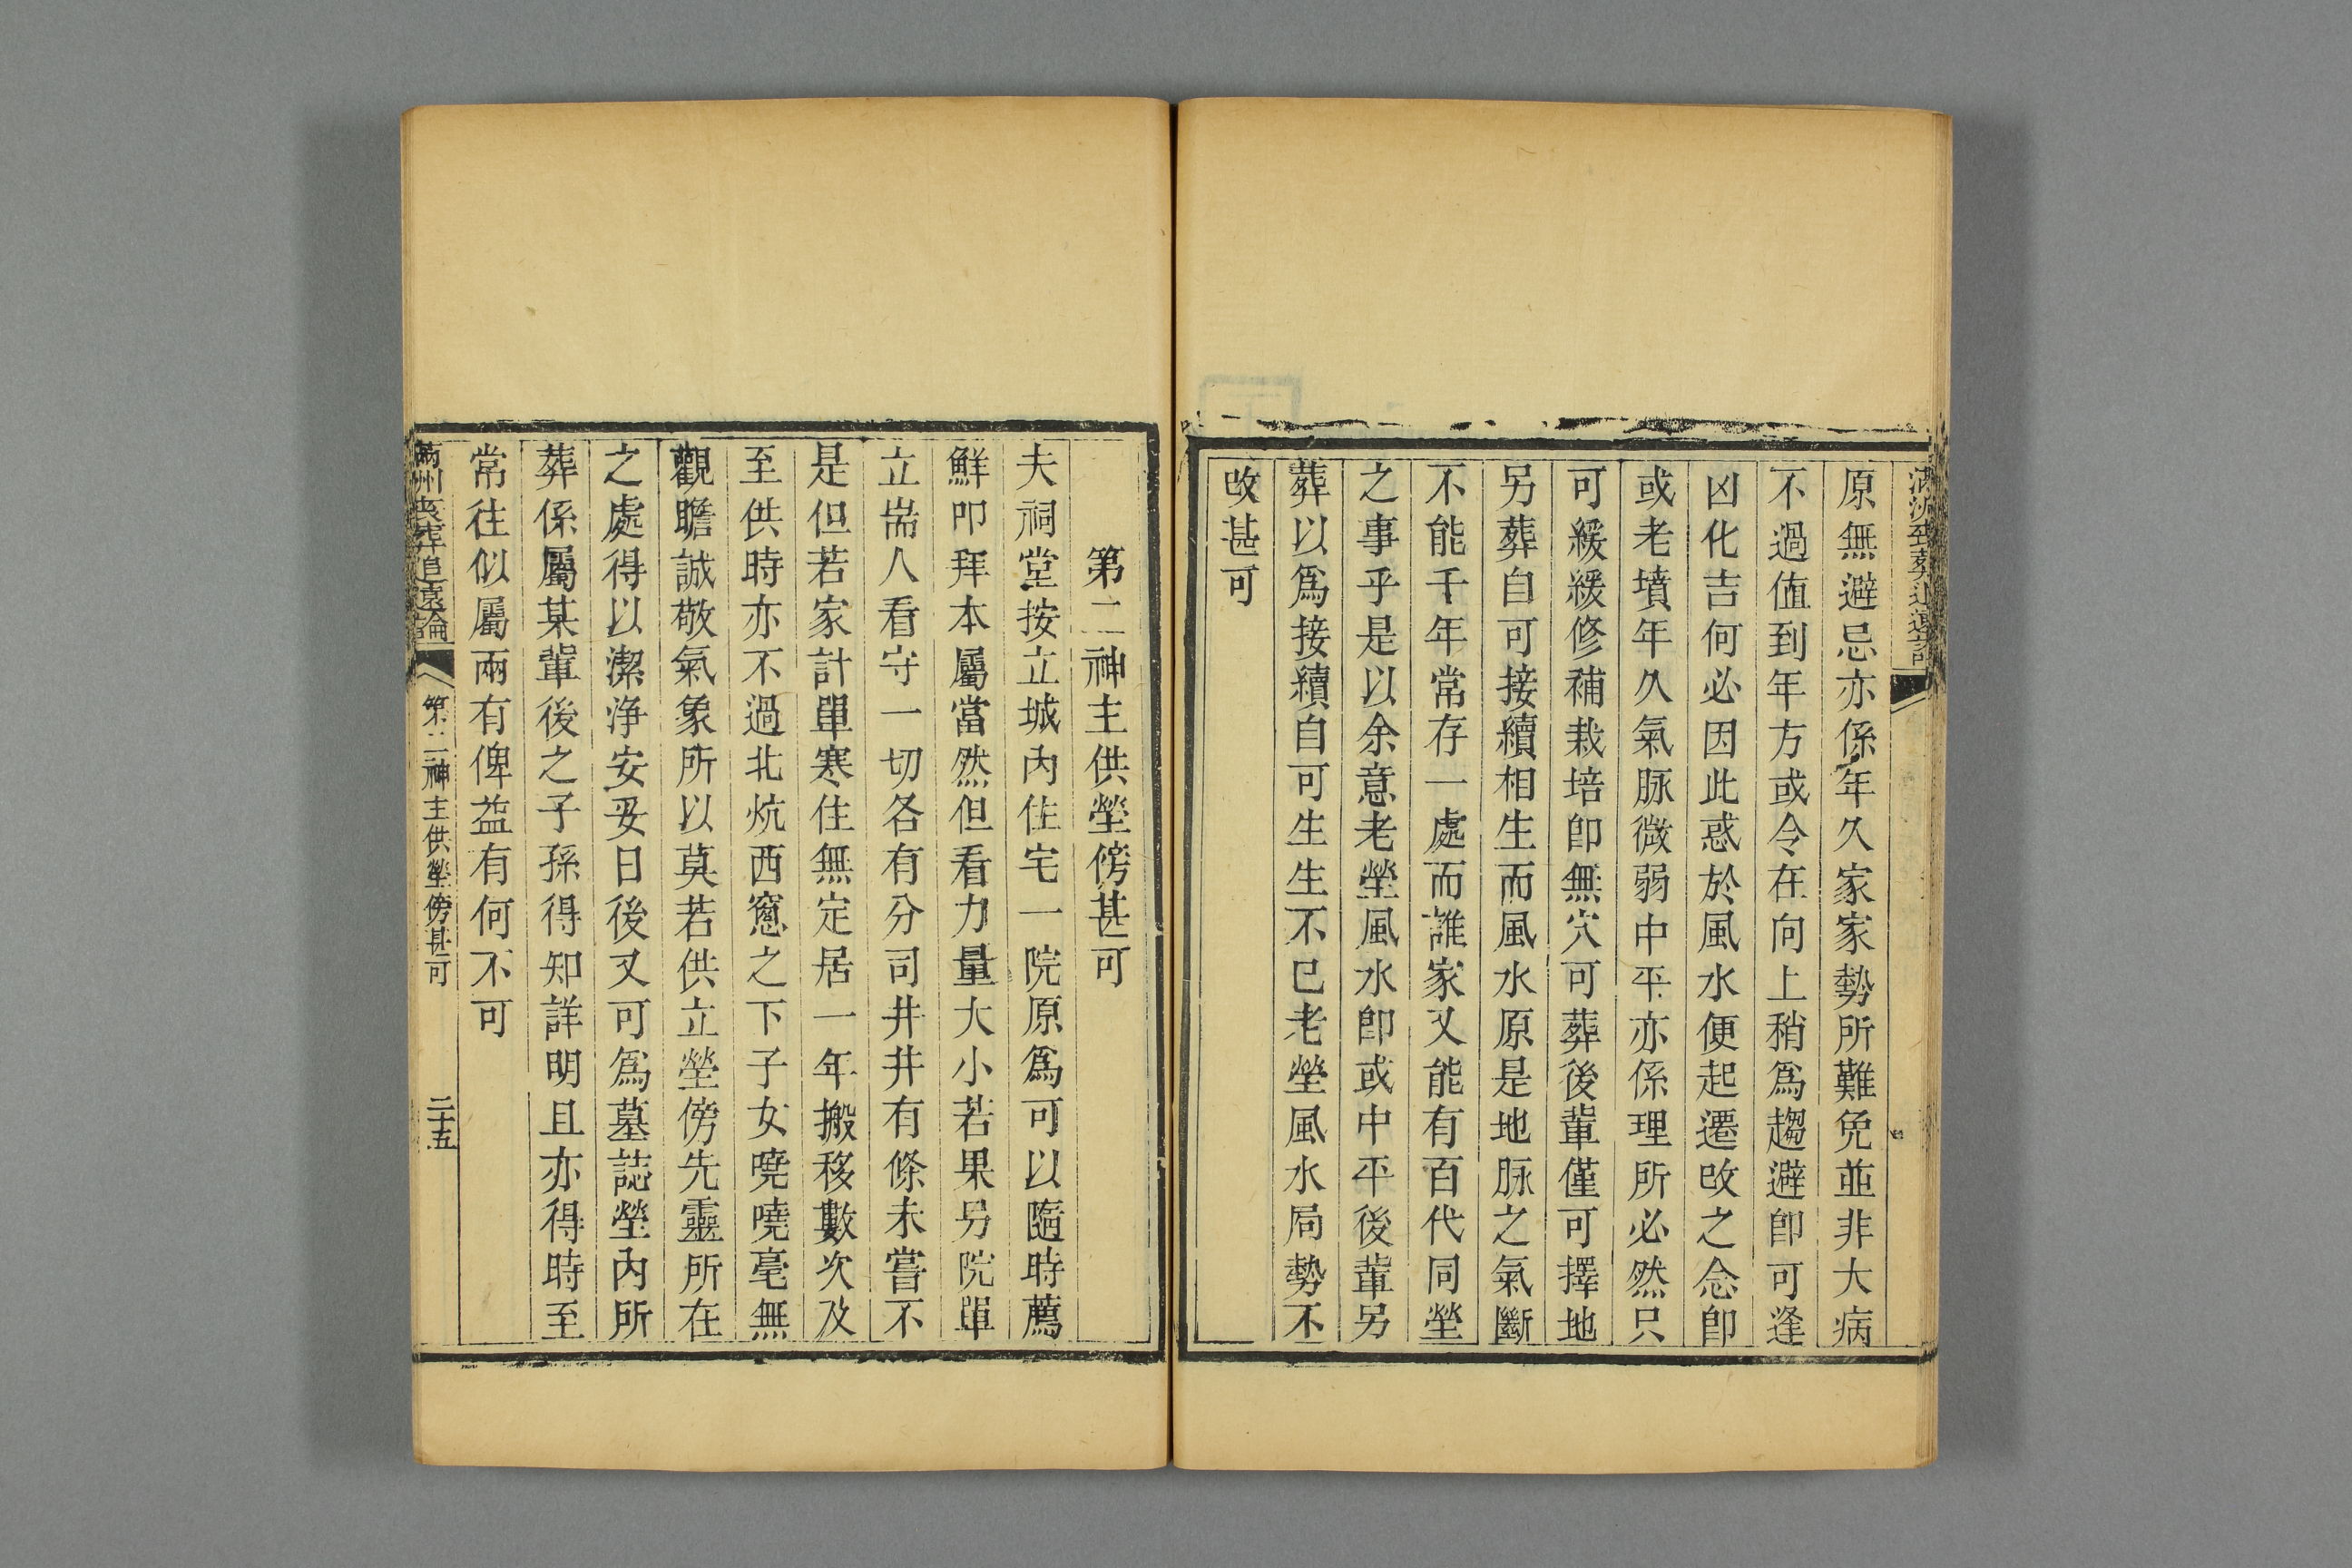 原無避忌亦係年久家家勢所難免並非大病
不過值到年方或令在向上稍爲趨避卽可逢
凶化吉何必因此惑於風水便起遷改之念卽
或老墳年久氣脉微弱中平亦係理所必然只
可緩緩修補栽培卽無穴可葬後輩僅可擇地
另葬自可接續相生而風水原是地脉之氣斷
不能千年常存一處而誰家又能有百代同塋
之事乎是以余意老塋風水卽或中平後輩另
葬以爲接續自可生生不已老塋風水局勢不
改甚可
第二神主供塋傍甚可
夫祠堂按立城內住宅一院原爲可以隨時薦
鮮叩拜本屬當然但看力量大小若果另院單
立耑人看守一切各有分司井井有條未嘗不
是但若家計單寒住無定居一年搬移數次及
至供時亦不過北炕西窻之下子女嘵嘵毫無
觀瞻誠敬氣象所以莫若供立塋傍先靈所在
之處得以潔淨安妥日後又可爲墓誌塋內所
葬係屬某輩後之子孫得知詳明且亦得時至
常往似屬兩有俾益有何不可
滿州喪葬追遠論
第二神主供塋傍甚可
二十五